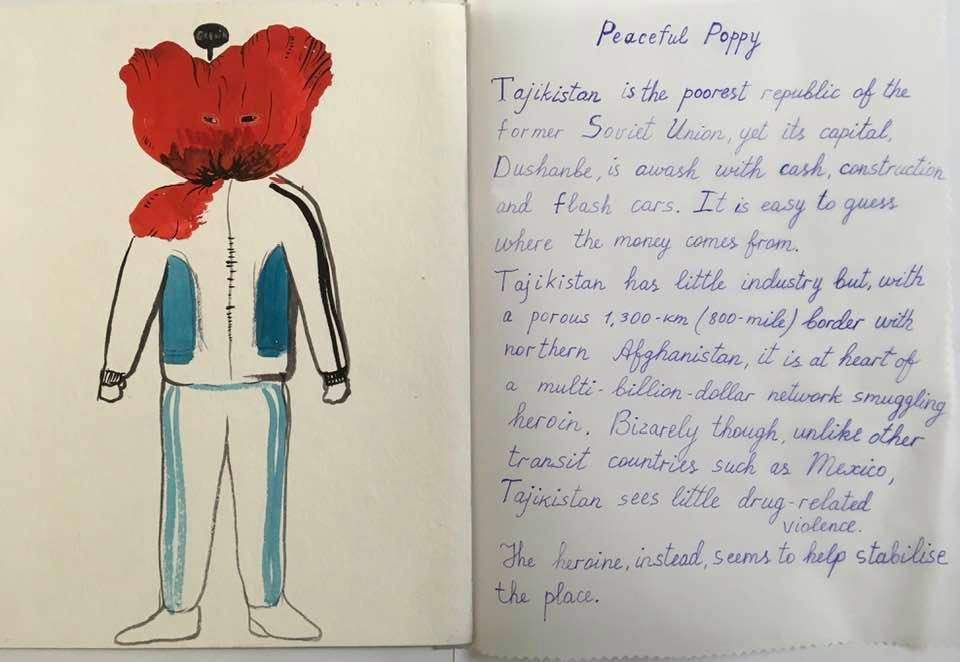 Peaceful Poppy
Tajikistan is the poorest republic of the
former Soviet Union, yet its capital,
Dushanbe, is awash with cash, construction
and flash cars. It is easy to guess
where the money comes from.
Tajikistan has little industry but, with
a porous 1,300-km (800-mile) border with
northern Afghanistan, it is at heart of
a multi-billion-dollar network smuggling
heroin. Bizarely though, unlike other
transit countries such as Mexico,
Tajikistan sees little drug-related
violence.
The heroine, instead, seems to help stabilise
the place.